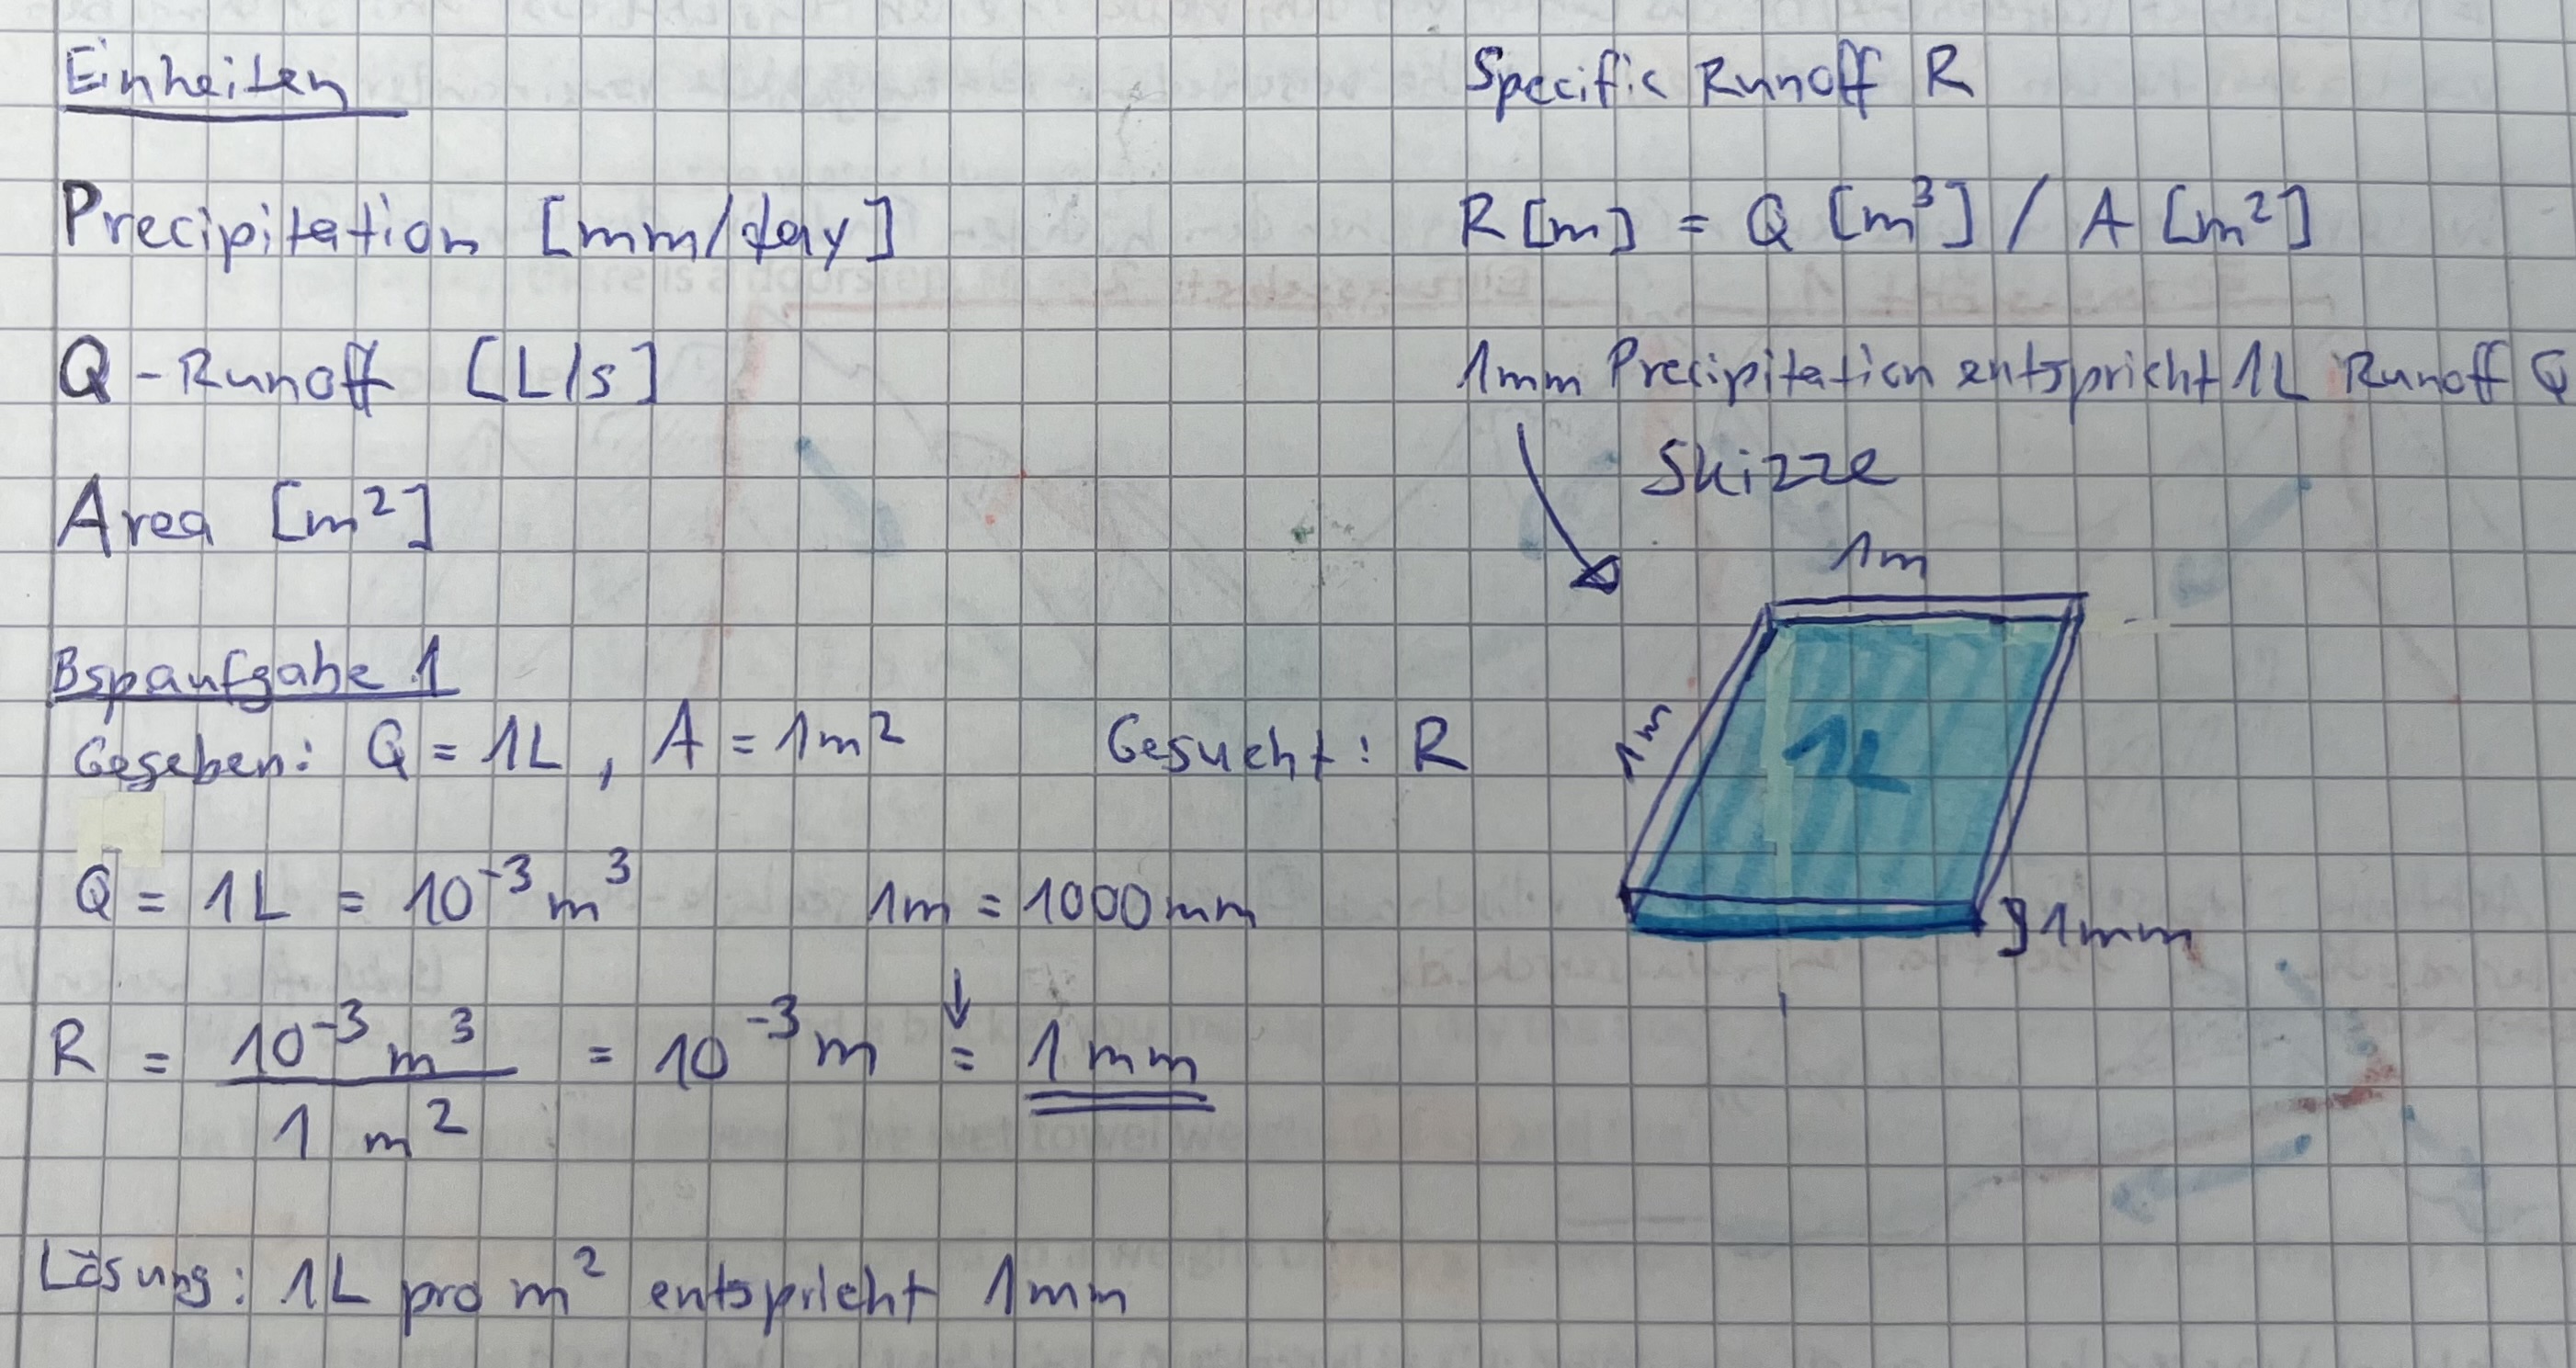 Einheiten
Precipitation [mm/day]
Q - Runoff [L/s]
Area [m²]
Specific Runoff R
R [m] = Q [m³] / A [m²]
1mm Precipitation entspricht 1L Runoff Q
Skizze
1m
1m
1L
1mm
Bspaufgabe 1
Gegeben: Q = 1L , A = 1m² Gesucht: R
Q = 1L = 10⁻³ m³ 1m = 1000mm
↓
R = 10⁻³ m³ / 1 m² = 10⁻³ m = 1mm
Lösung: 1L pro m² entspricht 1mm